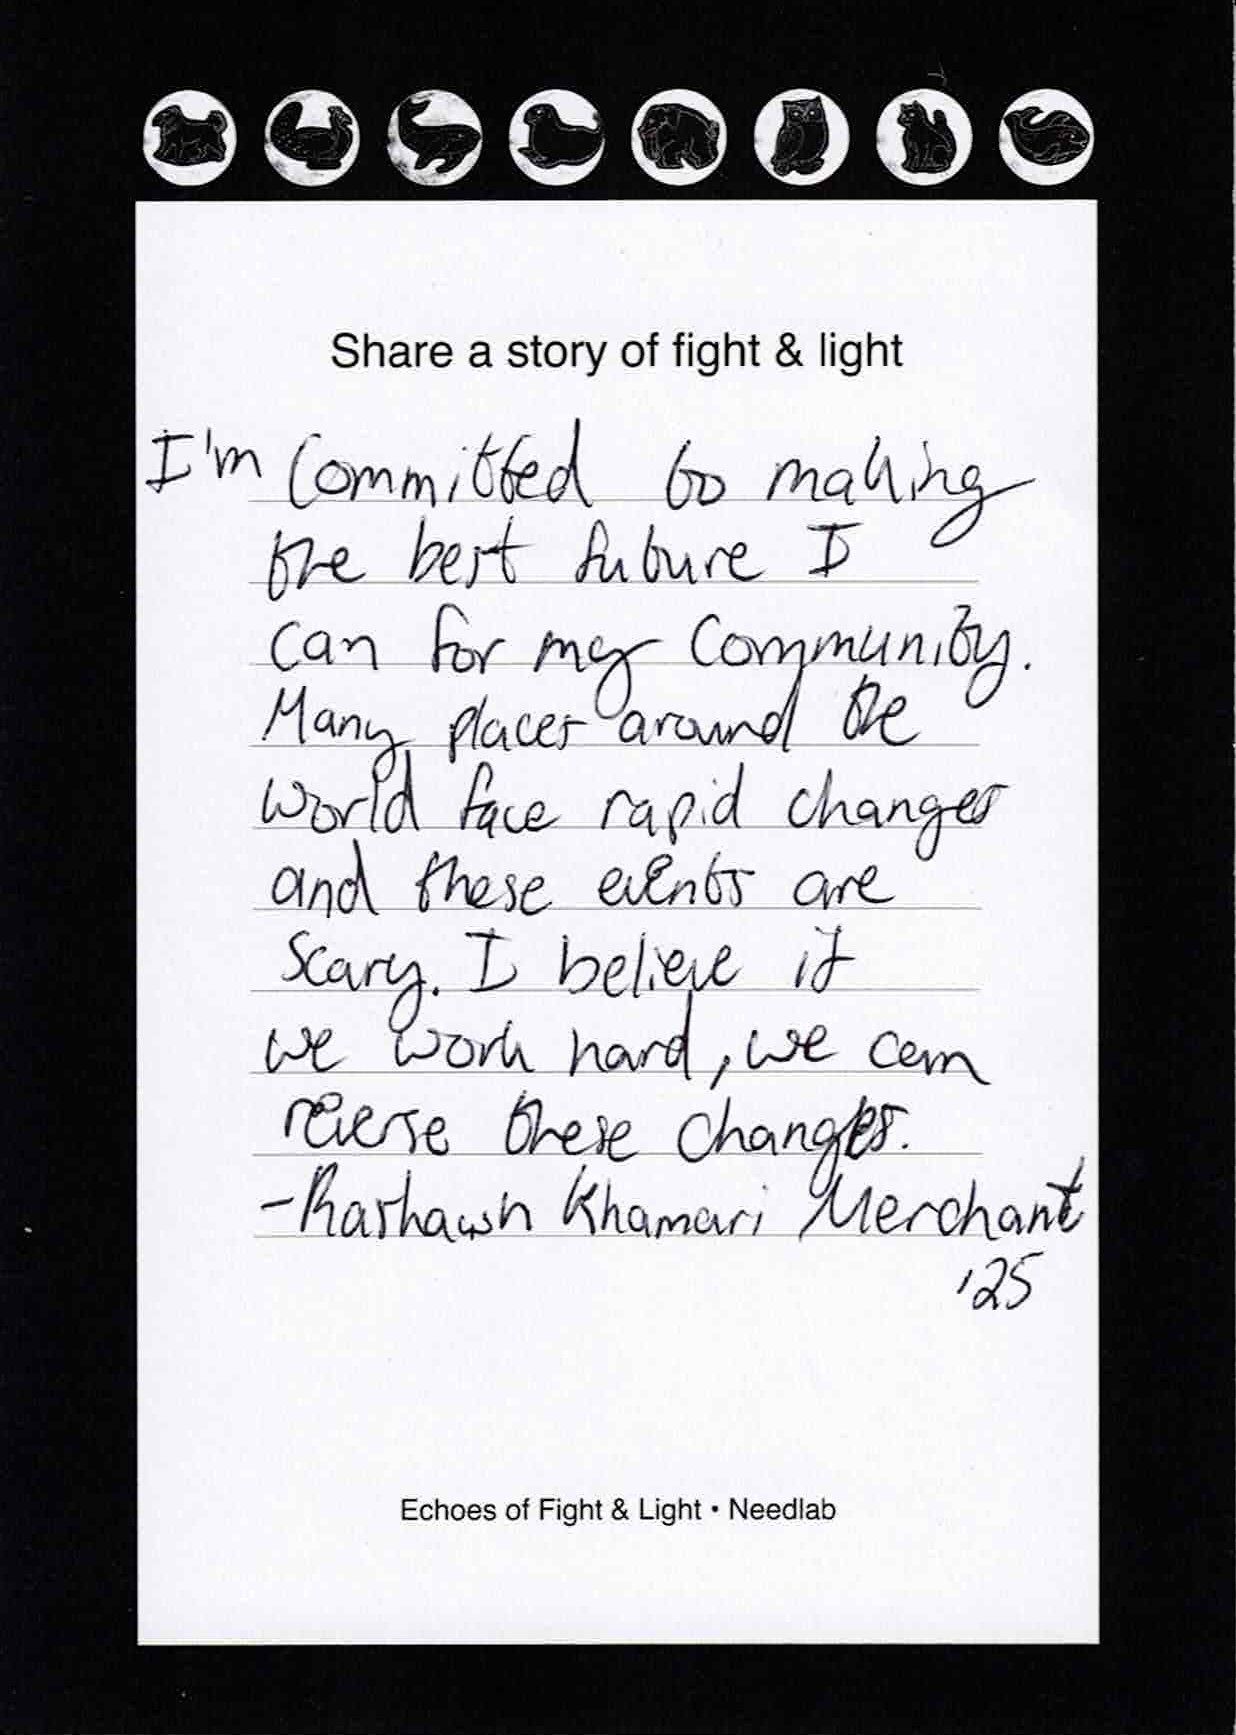 Share a story of fight & light
I'm Committed to making
the best future I
can for my Community.
Many places around the
world face rapid changes
and these events are
scary. I believe if
we work hard, we can
reverse these changes.
-Rashawn Khamari Merchant
'25
Echoes of Fight & Light • Needlab